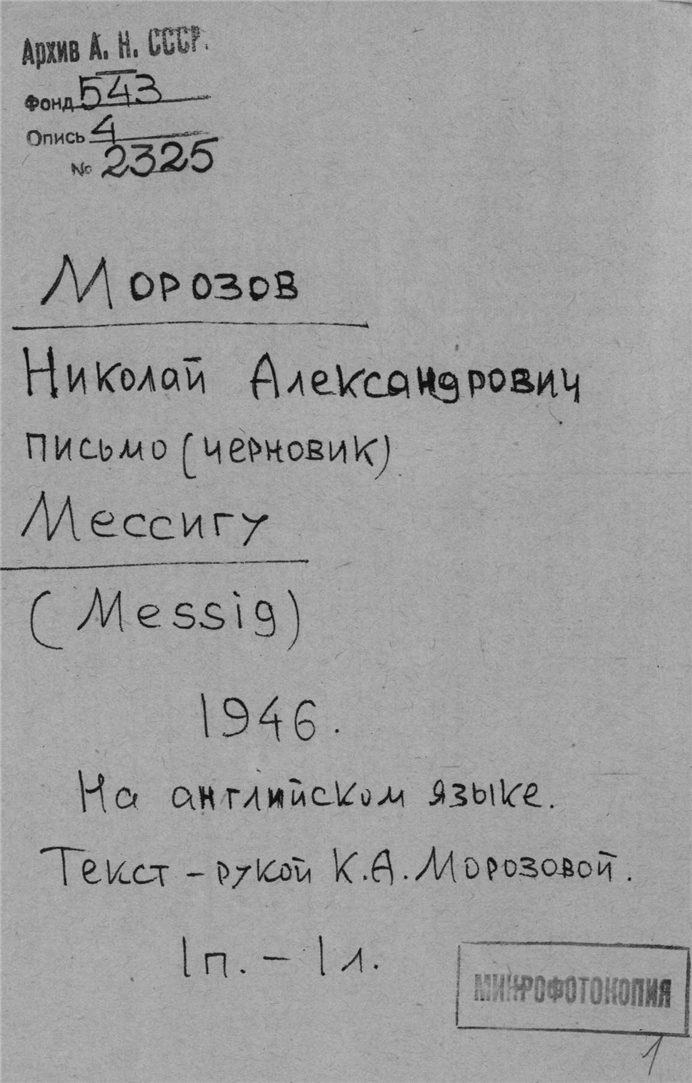 Архив А. Н. СССР.
Фонд 543
Опись 4
№ 2325
Морозов
Николай Александрович
письмо (черновик)
Мессигу
(Messig)
1946.
На английском языке.
Текст - рукой К.А. Морозовой.
1 п. - 1 л.
МИКРОФОТОКОПИЯ
1